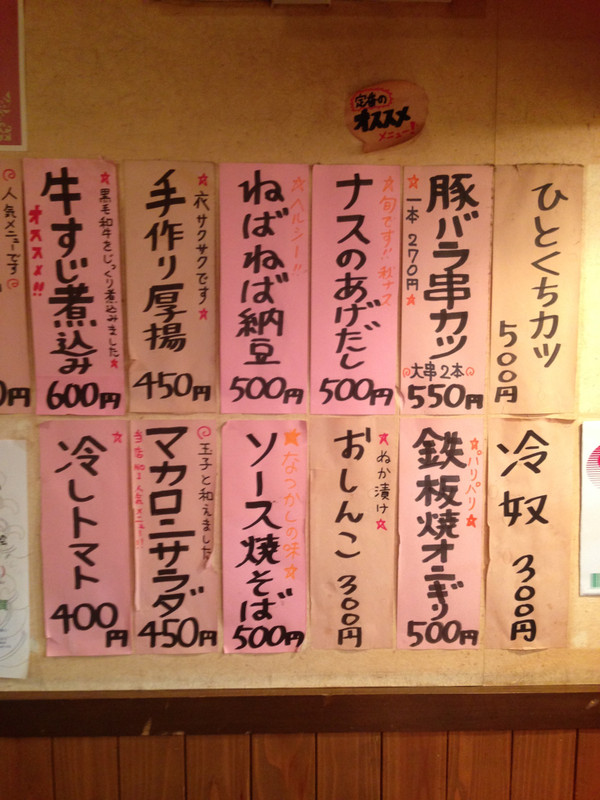 定番の
オススメ
メニュー!
ひとくちカツ
500円
豚バラ串カツ
一本 270円
大串2本
550円
ナスのあげだし
旬です!! 秋ナス
500円
ねばねば納豆
ヘルシー!!
500円
手作り厚揚
衣サクサクです
450円
牛すじ煮込み
黒毛和牛をじっくり煮込みました
オススメ!!
600円
人気メニューです
0円
冷奴
300円
鉄板焼オニギリ
パリパリ
500円
おしんこ
ぬか漬け
300円
ソース焼そば
なつかしの味
500円
マカロニサラダ
玉子と和えました
当店No.1人気メニュー!!
450円
冷しトマト
400円